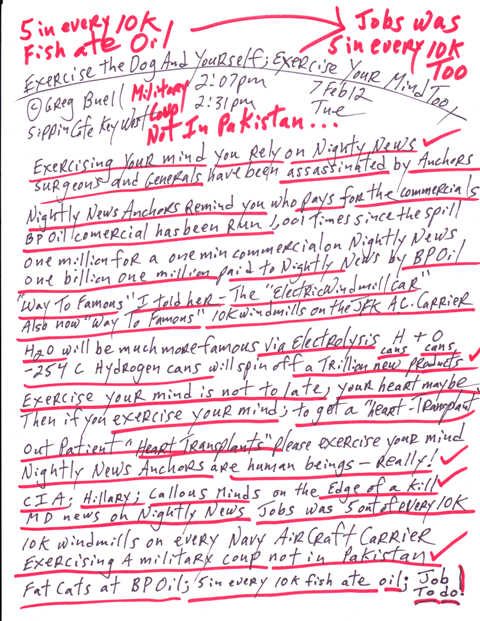 5 in every 10K
Fish ate Oil
Jobs was
5 in every 10K
Too
Exercise the Dog And Yourself; Exercise Your Mind Too,
© Greg Buell
Sippin Cafe Key West
Military
Coup
Not In Pakistan...
2:07pm
2:31pm
7 Feb 12
Tue
Exercising your mind you rely on Nighty News
surgeons and Generals have been assassinated by Anchors
Nightly News Anchors Remind you who pays for the commercials
BP Oil comercial has been Run 1,001 times since the spill
one million for a one min commercial on Nightly News
one billion one million paid to Nightly News by BP Oil
"Way To Famous" I told her - The "Electric Windmill Car"
Also now "Way To Famous" 10K windmills on the JFK A.C. Carrier
H2O will be much more famous via Electrolysis H + O
cans cans,
-254 C Hydrogen cans will spin off a Trillion new products
Exercise your mind is not to late, your heart maybe
Then if you exercise your mind; to get a "heart-Transplant
Out Patient "Heart Transplants" please exercise your mind
Nightly News Anchors are human beings - Really!
CIA; Hillary; Callous Minds on the Edge of a Kill
MD news on Nightly News Jobs was 5 out of every 10K
10K windmills on every Navy AirCraft Carrier
Exercising A military coup not in Pakistan
Fat Cats at BP Oil; 5 in every 10K fish ate oil; Job
To do!